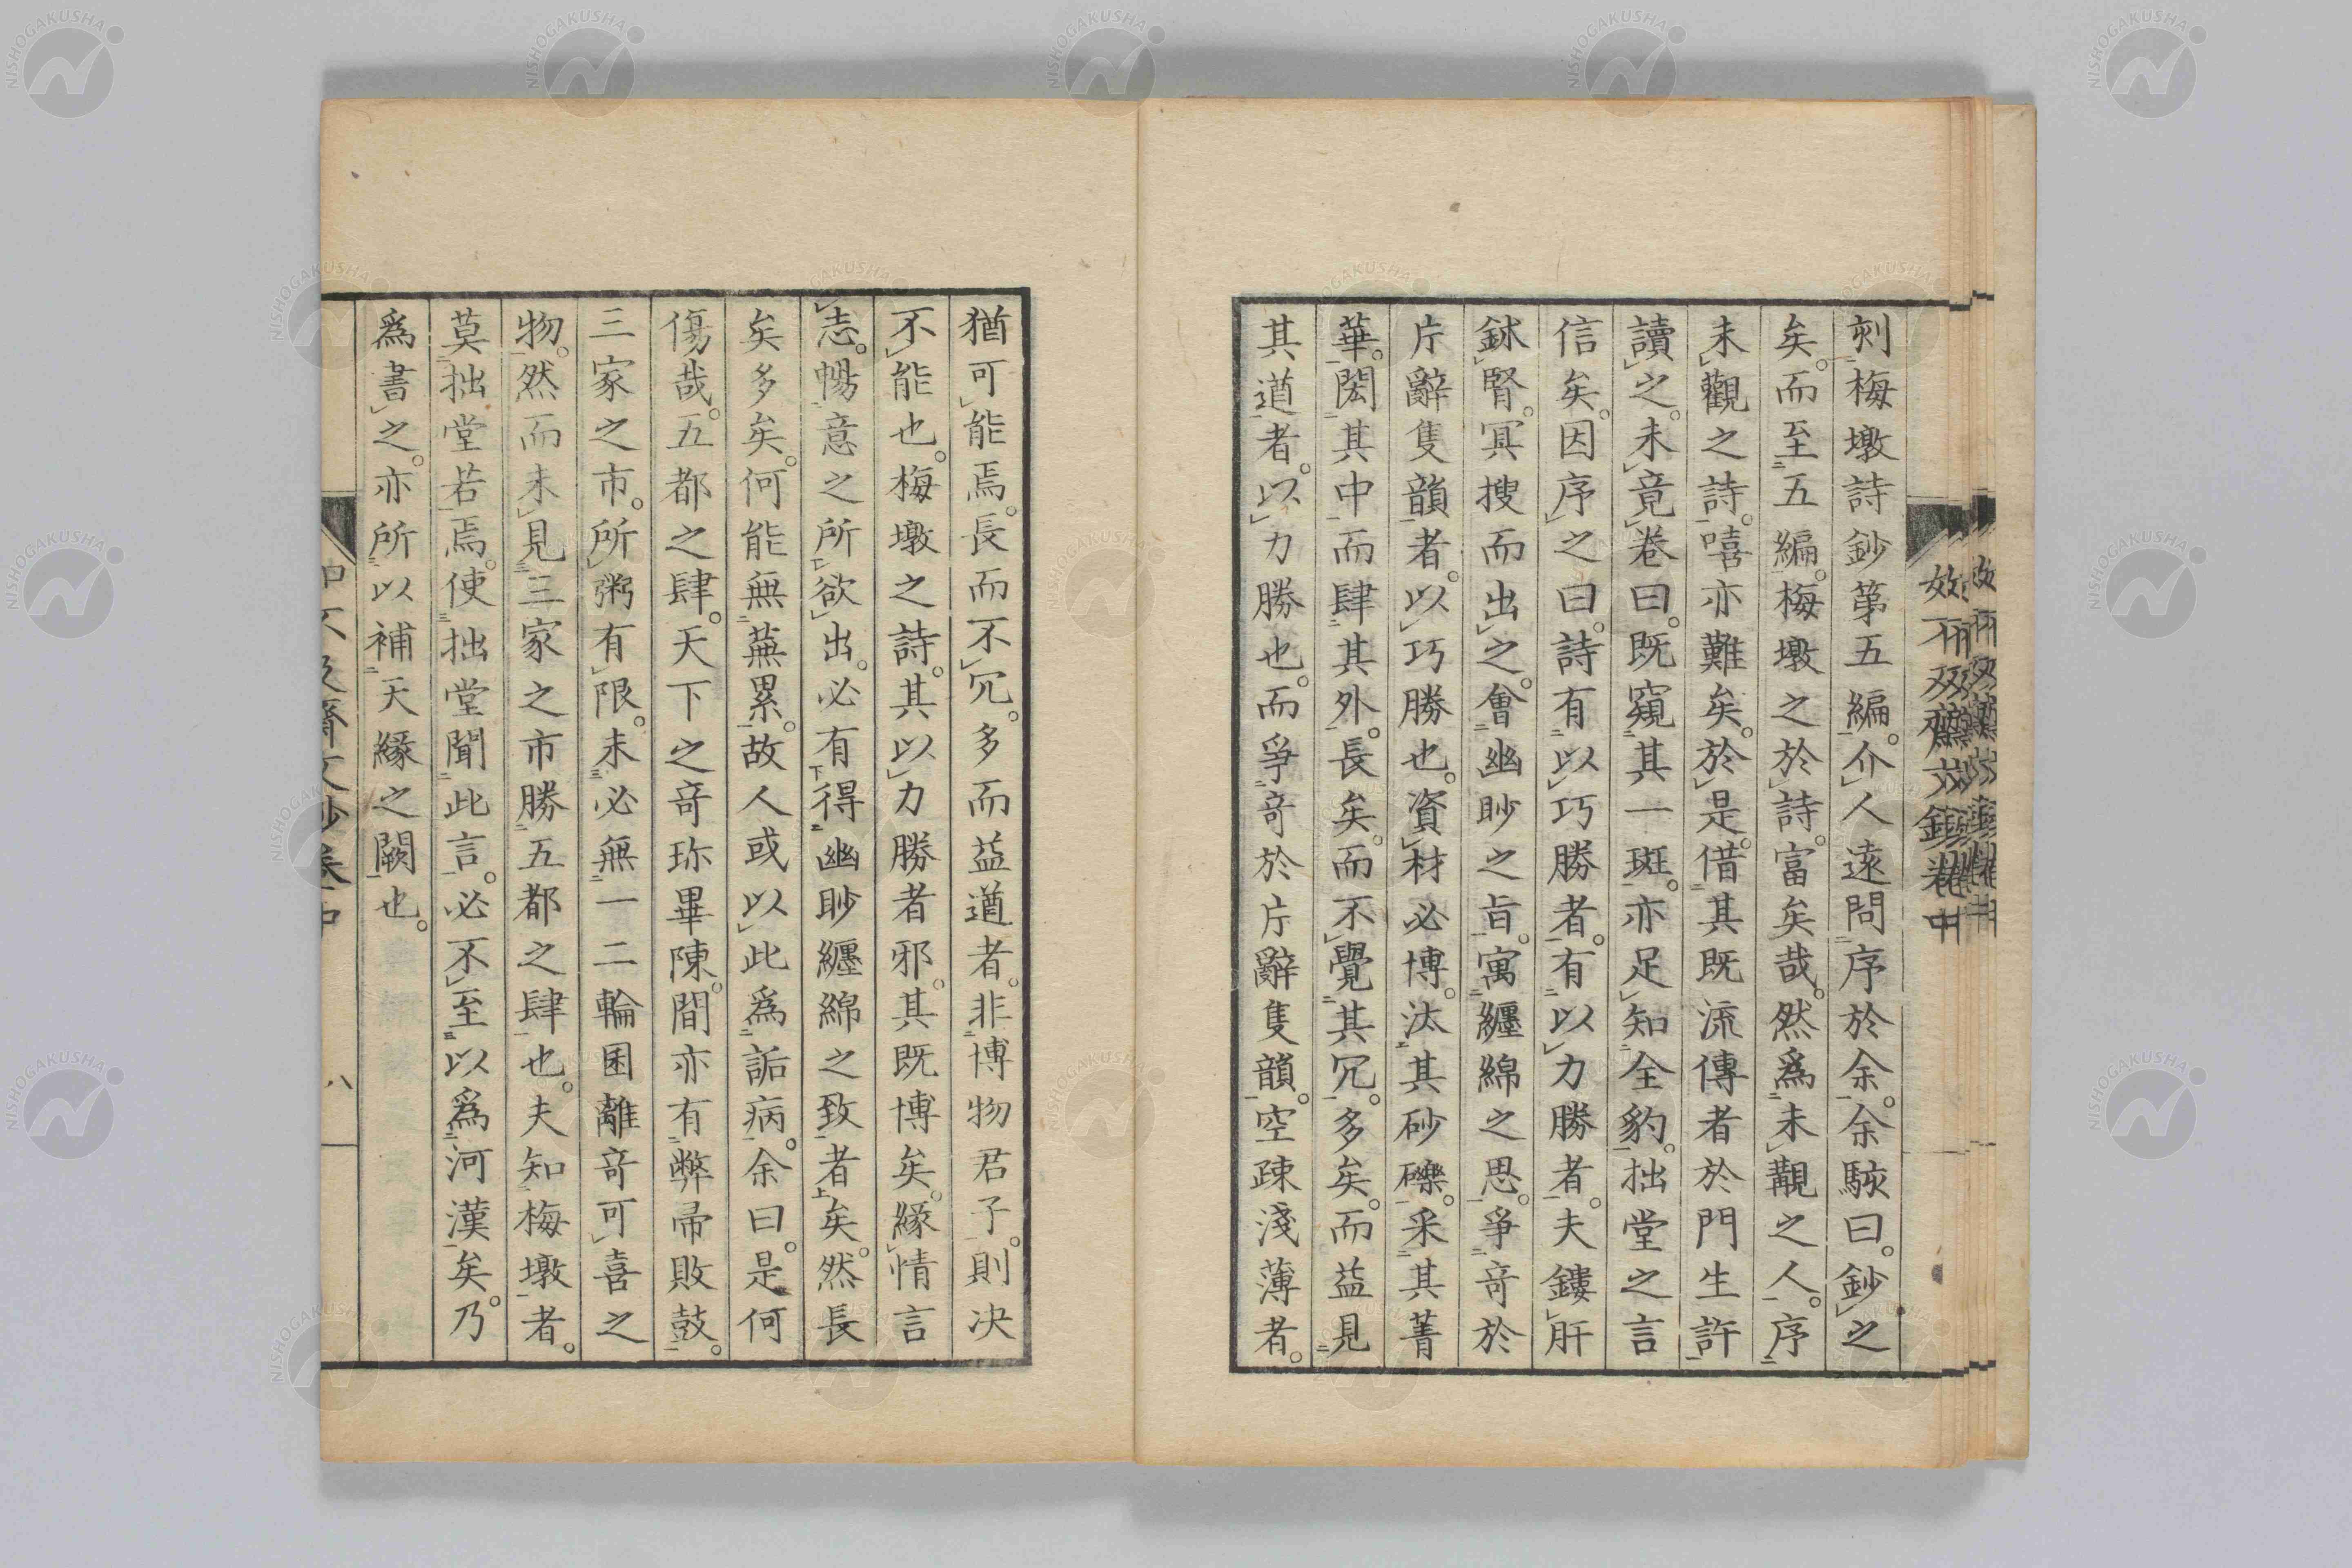 刻梅墩詩鈔第五編。介人遠問序於余。余駭曰。鈔之
矣。而至五編。梅墩之於詩。富矣哉。然爲未覯之人。序
未觀之詩。嘻亦難矣。於是。借其既流傳者於門生許
讀之。未竟卷曰。既窺其一斑。亦足知全豹。拙堂之言
信矣。因序之曰。詩有以巧勝者。有以力勝者。夫鏤肝
鉥腎。冥搜而出之。會幽眇之旨。寓纏綿之思。爭奇於
片辭隻韻者。以巧勝也。資材必博。汰其砂礫。采其菁
華。閎其中而肆其外。長矣。而不覺其冗。多矣。而益見
其遒者。以力勝也。而爭奇於片辭隻韻。空疎淺薄者。
猶可能焉。長而不冗。多而益遒者。非博物君子。則决
不能也。梅墩之詩。其以力勝者邪。其既博矣。緣情言
志。暢意之所欲出。必有得幽眇纏綿之致者矣。然長
矣多矣。何能無蕪累。故人或以此爲詬病。余曰。是何
傷哉。五都之肆。天下之奇珎畢陳。間亦有弊帚敗鼓。
三家之市。所粥有限。未必無一二輪囷離奇可喜之
物。然而未見三家之市勝五都之肆也。夫知梅墩者。
莫拙堂若焉。使拙堂聞此言。必不至以爲河漢矣。乃
爲書之。亦所以補天緣之闕也。
八